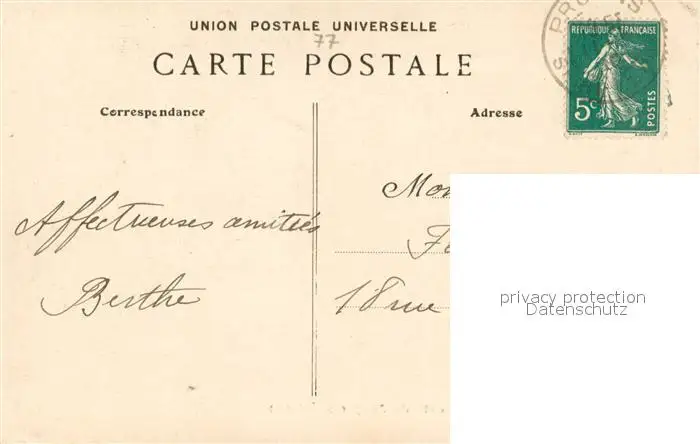 UNION POSTALE UNIVERSELLE
77
CARTE POSTALE
PROVINS
REPUBLIQUE FRANÇAISE
5c
POSTES
Correspondance
Adresse
Affectueuses amitiés
Berthe
Mon
18 rue
privacy protection
Datenschutz